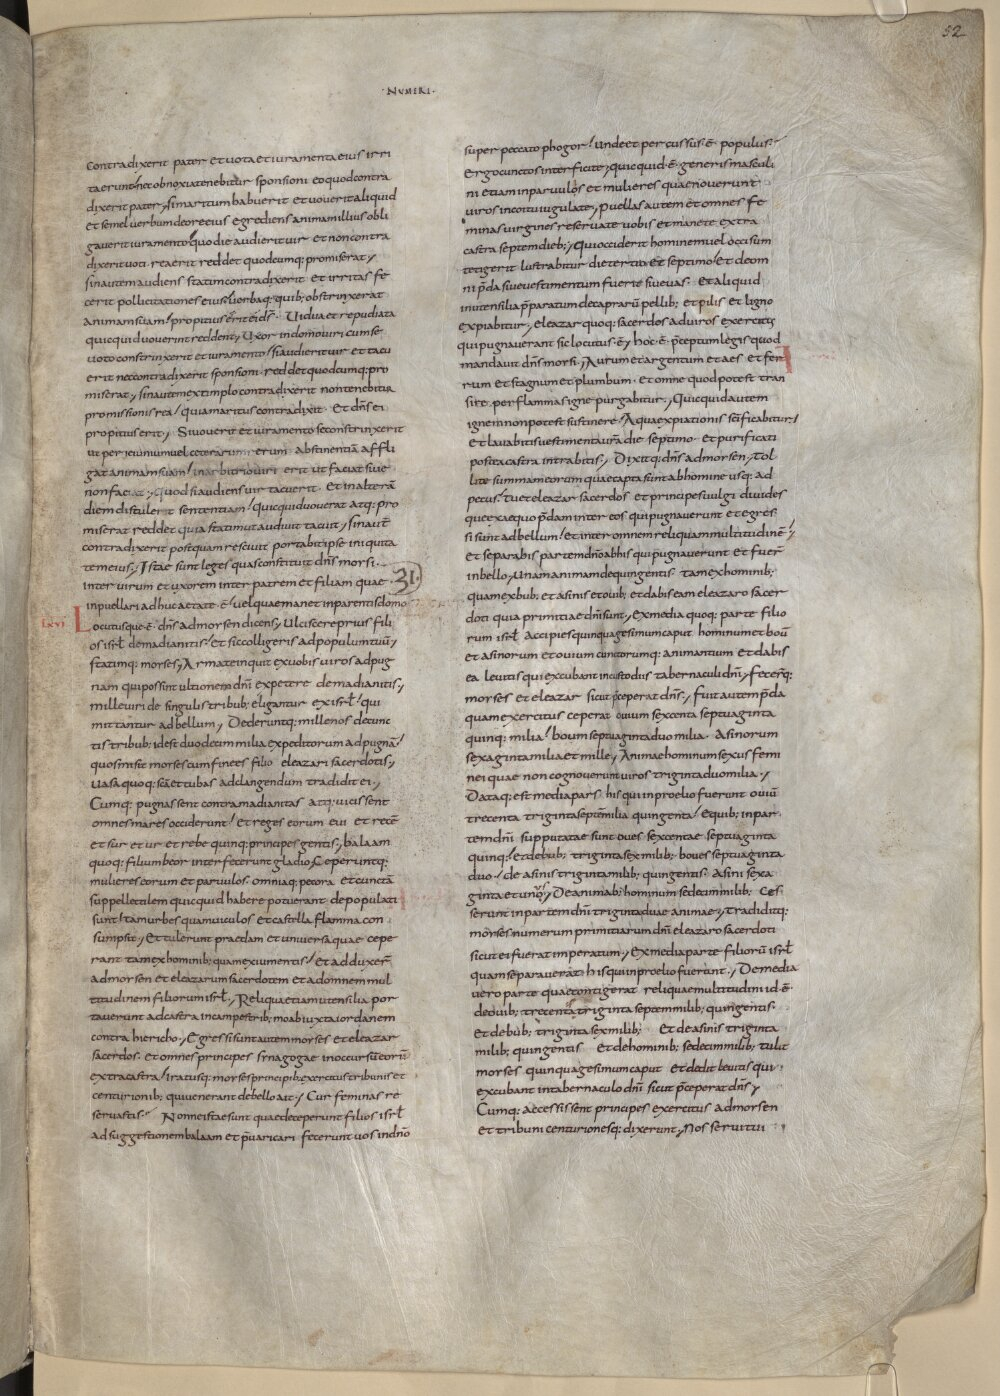 52
NUMERI.
contradixerit pater et uota et iuramenta eius irri
ta erunt nec obnoxia tenebitur sponsioni eo quod contra
dixerit pater; si maritum habuerit et uouerit aliquid
et semel uerbum de ore eius egrediens animam illius obli
gauerit iuramento quo die audierit uir et non contra
dixerit uoti rea erit reddet quodcumq; promiserat;
sin autem audiens statim contradixerit et irritas fe
cerit pollicitationes eius uerbaq; quib; obstrinxerat
animam suam propitius erit ei dñs. Uidua et repudiata
quicquid uouerint reddent; Uxor in domo uiri cum se
uoto constrinxerit et iuramento si audierit uir et tacu
erit nec contradixerit sponsioni reddet quodcumq; pro
miserat; sin autem extimplo contradixerit non tenebitur
promissionis rea quia maritus contradixit Et dñs ei
propitius erit; Si uouerit et iuramento se constrinxerit
ut per ieiunium uel ceterarum rerum abstinentiã affli
gat animam suam in arbitrio uiri erit ut faciat siue
non faciat; quod si audiens uir tacuerit Et in alterã
diem distulerit sententiam quicquid uouerat atq; pro
miserat reddet quia statim ut audiuit tacuit; sin aut̃
contradixerit postquam resciuit portabit ipse iniquita
tem eius; Istae sunt leges quas constituit dñs morsi
inter uirum et uxorem inter patrem et filiam quae
31.
in puellari adhuc aetate ẽ uel quae manet in parentis domo
LXVI Locutusque ẽ dñs ad morsen dicens; Ulciscere prius fili
os isrł de madianitis et sic colligeris ad populum tuũ;
statimq; morses; Armate inquit ex uobis uiros ad pug
nam qui possint ultionem dñi expetere de madianitis;
mille uiri de singulis tribub; eligantur ex isrł qui
mittantur ad bellum; Dederuntq; millenos de cunc
tis tribub; id est duodecim milia expeditorum ad pugnã
quos misit morses cum finees filio eleazari sacerdotis;
Uasa quoq; scã et tubas ad clangendum tradidit ei;
Cumq; pugnassent contra madianitas atq; uicissent
omnes mares occiderunt et reges eorum eui et recẽ
et sur et ur et rebe quinq; principes gentis; balaam
quoq; filium beor interfecerunt gladio; Ceperuntq;
mulieres eorum et paruulos omniaq; pecora et cunctã
suppellectilem quicquid habere potuerant depopulati
sunt tam urbes quam uiculos et castella flamma con
sumpsit; Et tulerunt praedam et uniuersa quae cepe
rant tam ex hominib; quam ex iumentis Et adduxer̃
ad morsen et eleazarum sacerdotem et ad omnem mul
titudinem filiorum isrł; Reliqua etiam utensilia por
tauerunt ad castra in campestrib; moab iuxta iordanem
contra hiericho; Egressi sunt autem morses et eleazar
sacerdos et omnes principes synagogae in occursũ eorũ
extra castra iratusq; morses principib; exercitus tribunis et
centurionib; qui uenerant de bello ait; Cur feminas re
seruastis Nonne istae sunt quae deceperunt filios isrł
ad suggestionem balaam et p̃uaricari fecerunt uos in dño
super peccato phogor Unde et percussus ẽ populus
Ergo cunctos interficite; quicquid ẽ generis masculi
ni etiam in paruulos et mulieres quae nouerunt
uiros in coitu iugulate; puellas autem et omnes fe
minas uirgines reseruate uobis et manete extra
castra septem dieb; Qui occiderit hominem uel occisum
tetigerit lustrabitur die tertio et septimo Et de om
ni p̃da siue uestimentum fuerit siue uas Et aliquid
in utensilia p̃paratum de caprarũ pellib; et pilis et ligno
expiabitur; eleazar quoq; sacerdos ad uiros exercitus
qui pugnauerant sic locutus ẽ; hoc ẽ p̃ceptum legis quod
mandauit dñs morsi; Aurum et argentum et aes et fer
rum et stagnum et plumbum et omne quod potest tran
sire per flammas igne purgabitur; Quicquid autem
ignem non potest sustinere Aqua expiationis sc̃ificabitur;
Et lauabitis uestimenta ur̃a die septimo Et purificati
postea castra intrabitis; Dixitq; dñs ad morsen; Tol
lite summam eorum quae capta sunt ab homine usq; ad
pecus Tu et eleazar sacerdos et principes uulgi diuides
que ex aequo p̃dam inter eos qui pugnauerunt et egres
si sunt ad bellum et inter omnem reliquam multitudinẽ;
et separabis partem dño ab his qui pugnauerunt et fuer̃
in bello; Unam animam de quingentis tam ex hominib;
quam ex bub; et asinis et ouib; et dabis eam eleazaro sacer
doti quia primitiae dñi sunt; Ex media quoq; parte filio
rum isrł Accipies quinquagesimum caput hominum et boũ
et asinorum et ouium cunctorumq; animantium et dabis
ea leuitis qui excubant in custodiis tabernaculi dñi; Fecer̃q;
morses et eleazar sicut p̃ceperat dñs; Fuit autem p̃da
quam exercitus ceperat ouium sexcenta septuaginta
quinq; milia boum septuaginta duo milia Asinorum
sexaginta milia et mille; Animae hominum sexus femi
nei quae non cognouerunt uiros triginta duo milia;
Dataq; est media pars his qui in proelio fuerunt ouiũ
trecenta triginta septẽ milia quingenta Equib; in par
tem dñi supputatae sunt oues sexcentae septuaginta
quinq; Et de bub; triginta sex milib; boues septuaginta
duo de asinis triginta milib; quingentis Asini sexa
ginta et unus; De animab; hominum sedecim milib; Ces
serunt in partem dñi triginta duae animae; Tradiditq;
morses numerum primitiarum dñi eleazaro sacerdoti
sicut ei fuerat imperatum; Ex media parte filiorũ isrł
quam separauerat his qui in proelio fuerunt; De media
uero parte quae contigerat reliquae multitudini id ẽ
de ouib; trecenta triginta septem milib; quingentis
et de bub; triginta sex milib; Et de asinis triginta
milib; quingentis Et de hominib; sedecim milib; tulit
morses quinquagesimum caput Et dedit leuitis qui
excubant in tabernaculo dñi sicut p̃ceperat dñs;
Cumq; accessissent principes exercitus ad morsen
et tribuni centurionesq; dixerunt; Nos serui tui